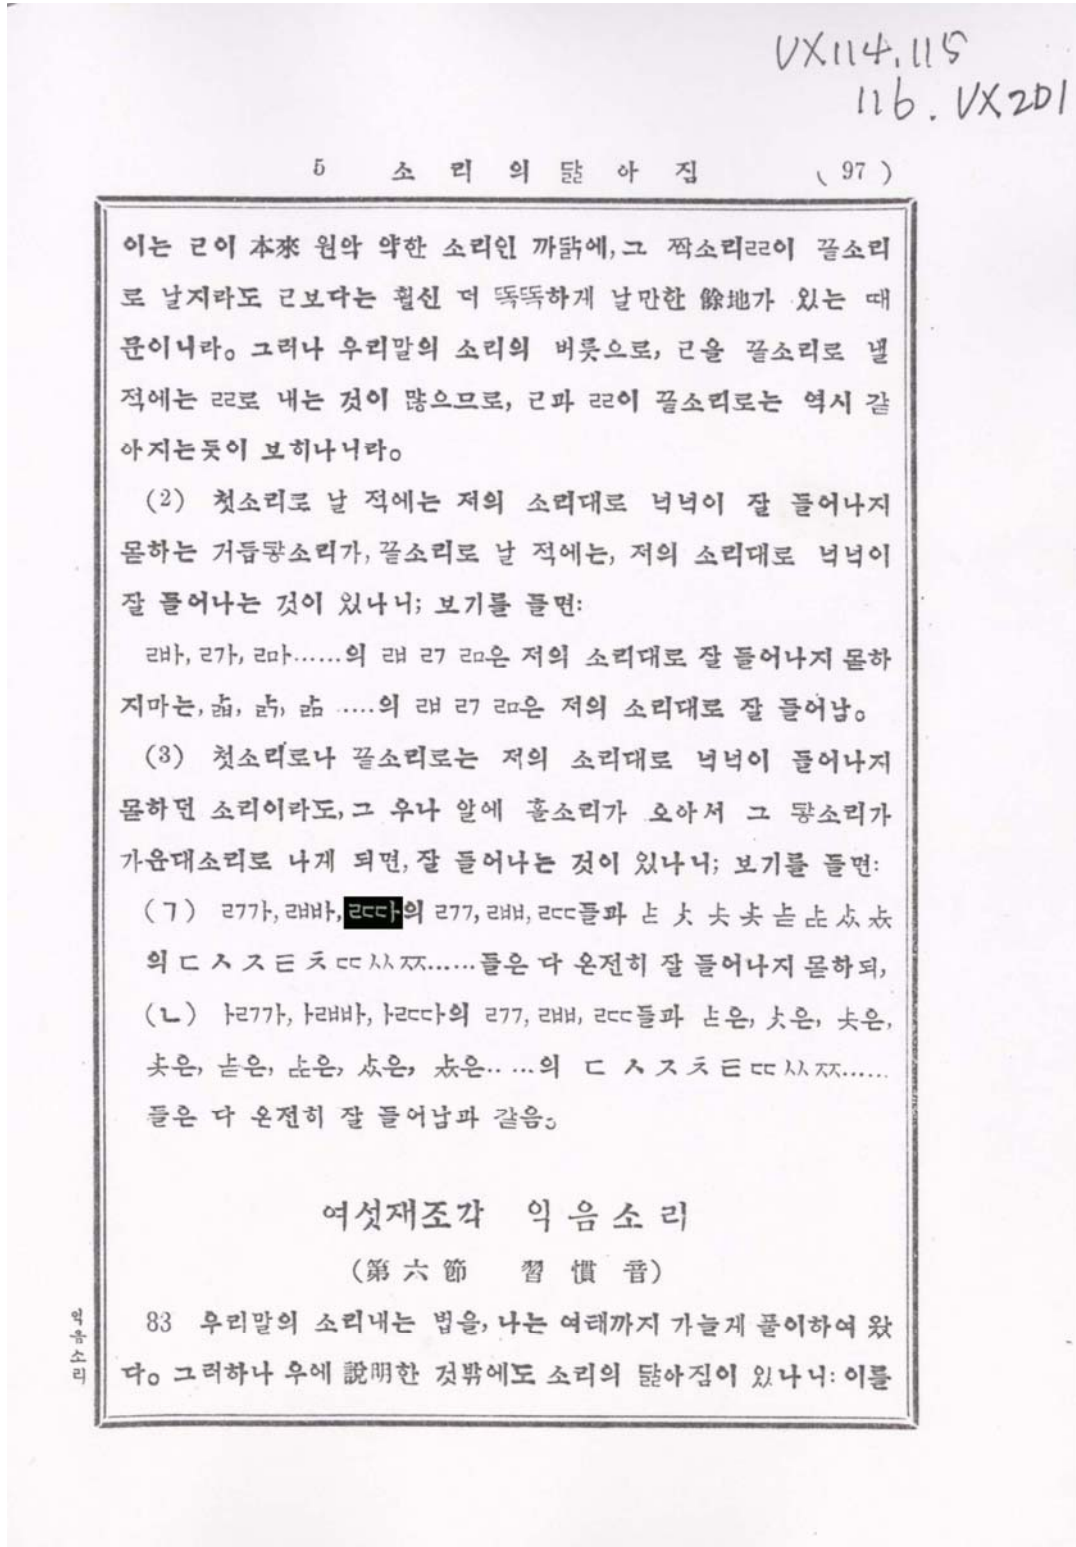 VX114.115
116. VX201
5 소리의 닮아짐 (97)
이는 ㄹ이 本來 원악 약한 소리인 까닭에, 그 짝소리ㄹㄹ이 끝소리
로 날지라도 ㄹ보다는 훨신 더 똑똑하게 날만한 餘地가 있는 때
문이니라。 그러나 우리말의 소리의 버릇으로, ㄹ을 끝소리로 낼
적에는 ㄹㄹ로 내는 것이 많으므로, ㄹ과 ㄹㄹ이 끝소리로는 역시 같
아지는듯이 보히나니라。
(2) 첫소리로 날 적에는 저의 소리대로 넉넉이 잘 들어나지
몯하는 거듭닿소리가, 끝소리로 날 적에는, 저의 소리대로 넉넉이
잘 들어나는 것이 있나니; 보기를 들면:
ㄹ바, ㄹ가, ㄹ마……의 ㄹㅂ ㄹㄱ ㄹㅁ은 저의 소리대로 잘 들어나지 몯하
지마는, ㅏㄼ, ㅏㄺ, ㅏㄻ ……의 ㄹㅂ ㄹㄱ ㄹㅁ은 저의 소리대로 잘 들어남。
(3) 첫소리로나 끝소리로는 저의 소리대로 넉넉이 들어나지
몯하던 소리이라도, 그 우나 알에 홀소리가 오아서 그 닿소리가
가운대소리로 나게 되면, 잘 들어나는 것이 있나니; 보기를 들면:
(ㄱ) ㄹㄱ가, ㄹㅂ바, ㄹㄷ다의 ㄹㄱㄱ, ㄹㅂㅂ, ㄹㄷㄷ들과 ㅏㄷ ㅏㅅ ㅏㅈ ㅏㅊ ㅏㅌ ㅏㄸ ㅏㅆ ㅏㅉ
의 ㄷ ㅅ ㅈ ㅌ ㅊ ㄸ ㅆ ㅉ……들은 다 온전히 잘 들어나지 몯하되,
(ㄴ) ㅏㄹㄱ가, ㅏㄹㅂ바, ㅏㄹㄷ다의 ㄹㄱㄱ, ㄹㅂㅂ, ㄹㄷㄷ들과 ㅏㄷ은, ㅏㅅ은, ㅏㅈ은,
ㅏㅊ은, ㅏㅌ은, ㅏㄸ은, ㅏㅆ은, ㅏㅉ은……의 ㄷ ㅅ ㅈ ㅊ ㅌ ㄸ ㅆ ㅉ……
들은 다 온전히 잘 들어남과 같음。
여섯재조각 익음소리
(第六節 習慣音)
익음소리
83 우리말의 소리내는 법을, 나는 여태까지 가늘게 풀이하여 왔
다。 그러하나 우에 說明한 것밖에도 소리의 닮아짐이 있나니: 이를